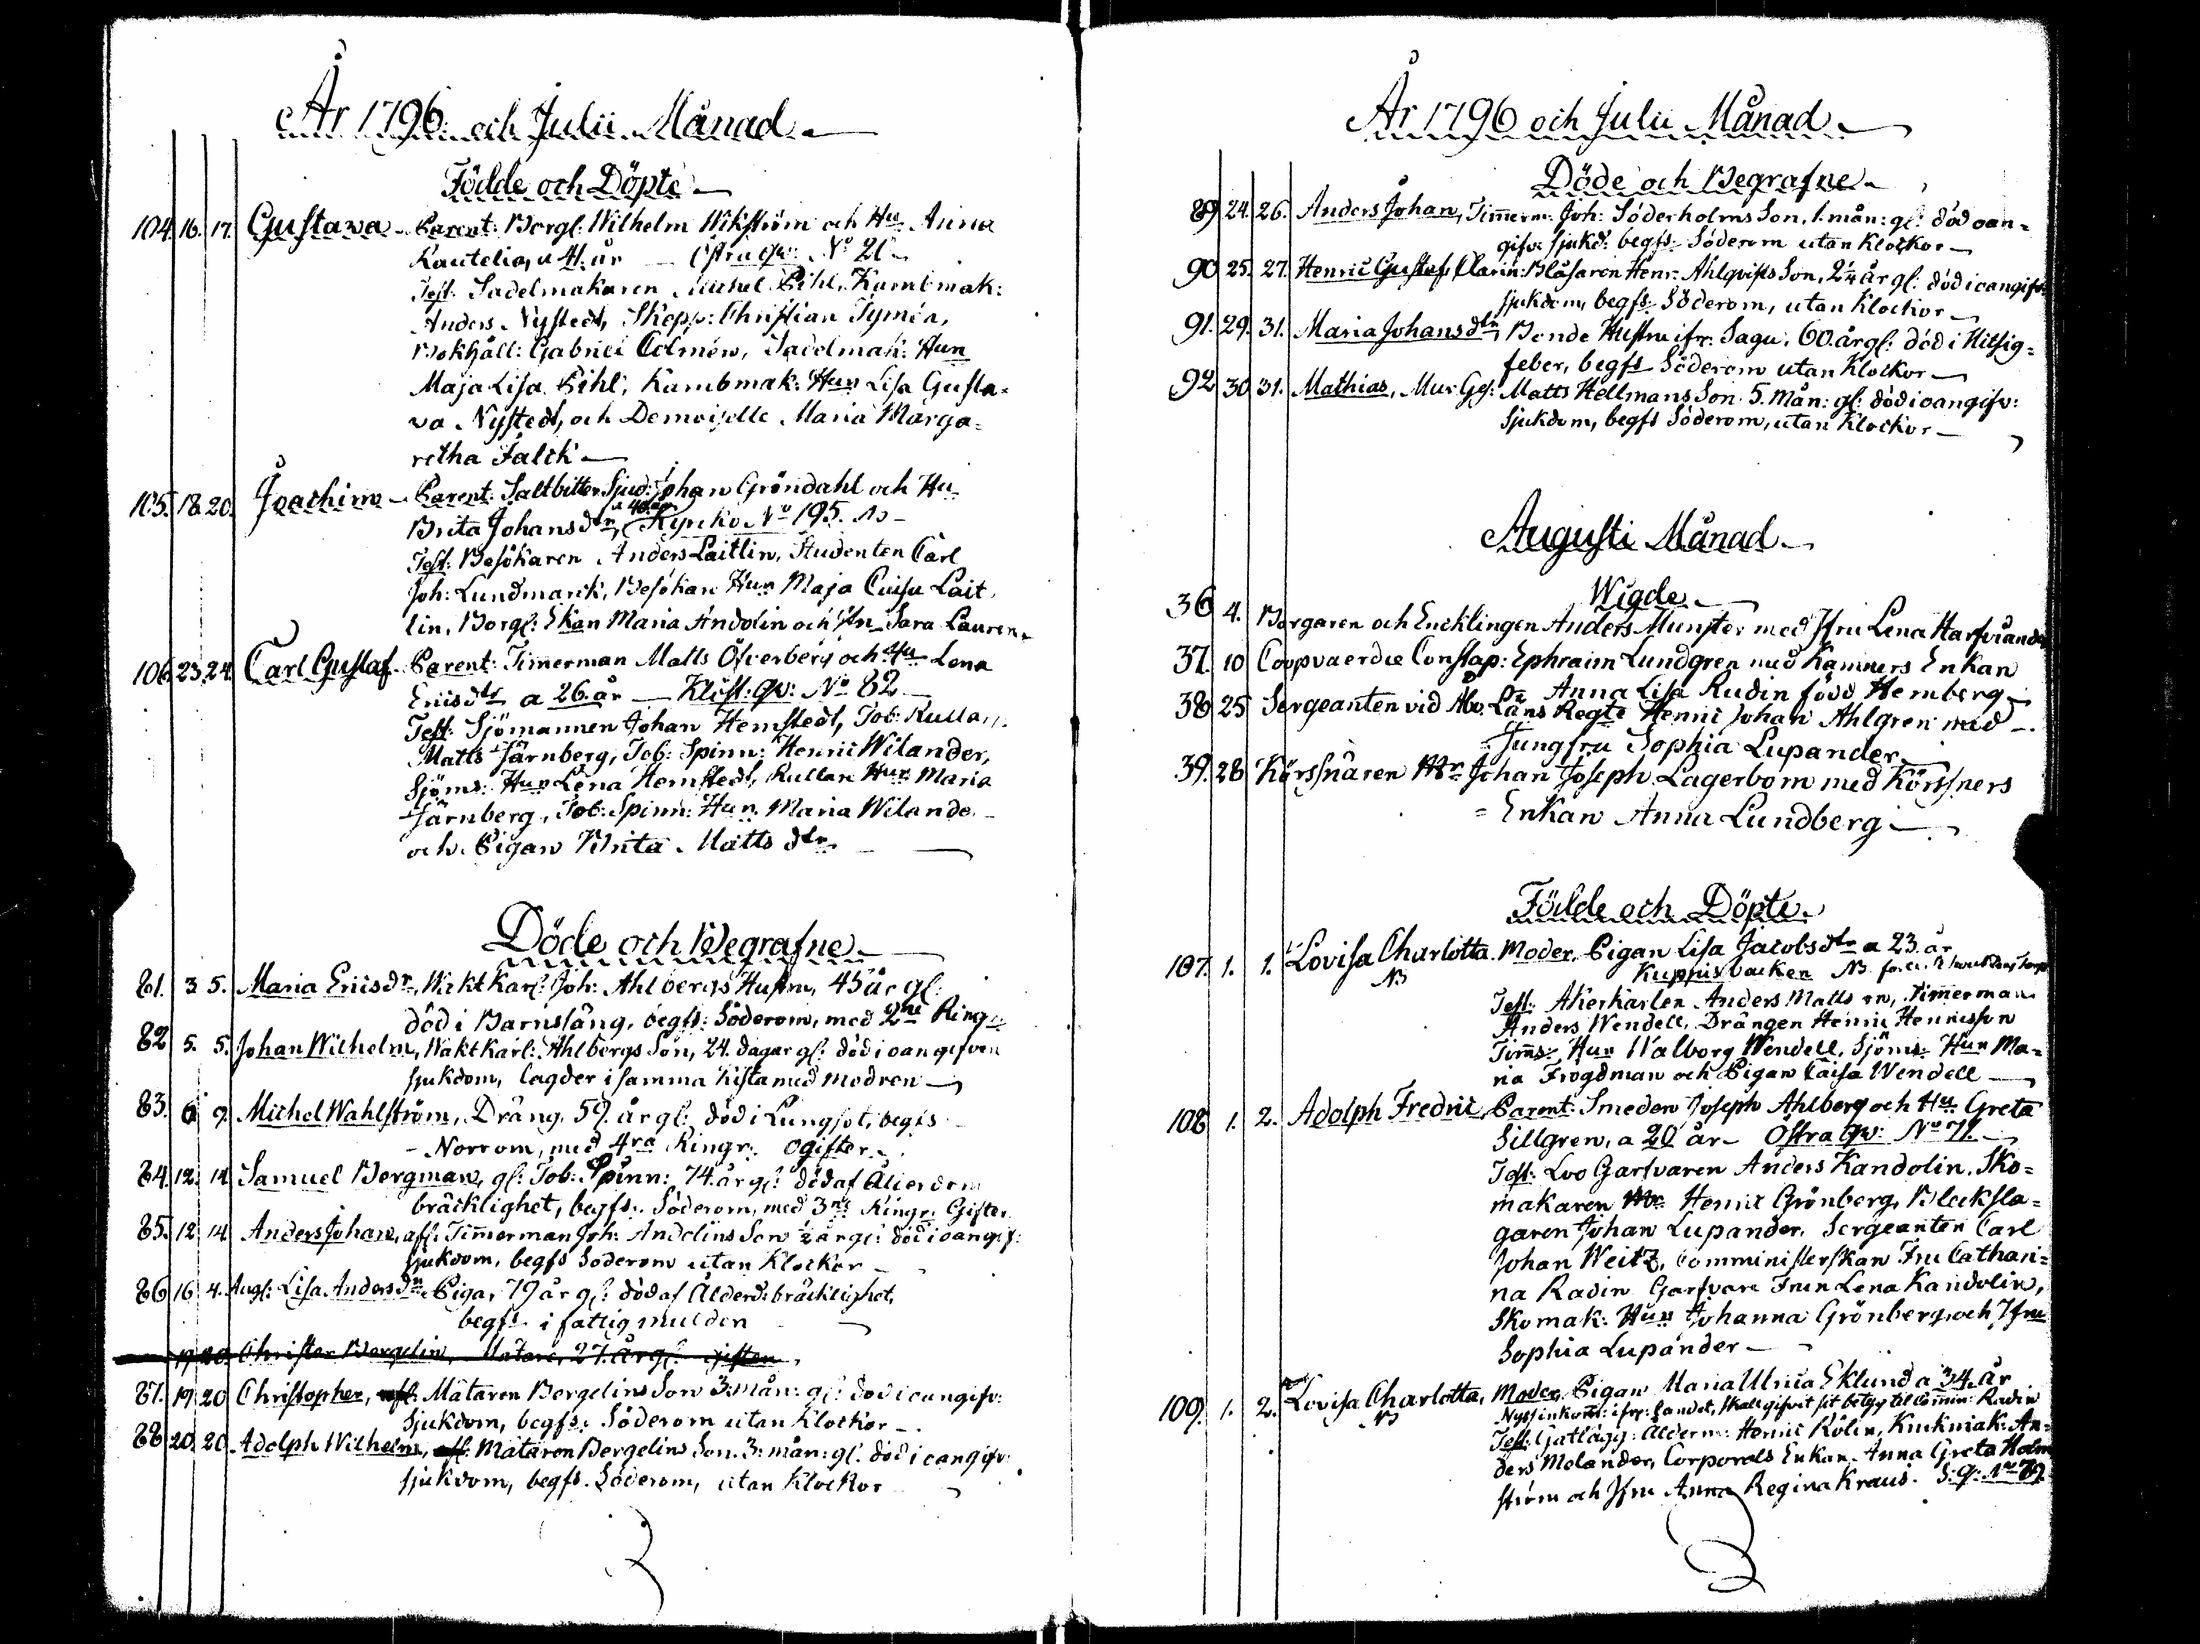 År 1796 och Julii Månad
Födde och Döpte
104. 16. 17. Gustava Parent: Borgl: Wilhelm Wikström och Hu Anna
Rautelia, a 41. år Östra Qv: No 21
Test. Sadelmakaren Michel Pihl, Kambmak:
Anders Nystedt, Skepp: Christian Tymén,
Bokhåll: Gabriel Colmén, Sadelmak: Hun
Maja Lisa Pihl, Kambmak: Hun Lisa Gusta-
va Nystedt, och Demoiselle Maria Marga-
retha Falck
105. 18. 20. Joachim Parent: Saltbitter Sjud: Johan Gröndahl och Hu
Brita Johansdtr, a 40 år Kyrko No 195.
Test: Besökaren Anders Laitlin, Studenten Carl
Joh: Lundmarck, Besökare Hun Maja Caisa Lait
lin, Borgl: Ekan Maria Andolin och Sara Lauren
106. 23. 24. Carl Gustaf Parent: Timerman Matts Öfverberg och Hu Lena
Ericsdtr a 26. år Klöst: Qv: No 82
Test: Sjömannen Johan Hemstedt, Tob: Rulla
Matts Järnberg, Tob: Spinn: Henric Wilander,
Sjöms: Hun Lena Hemstedt, Rullan Hun Maria
Järnberg, Tob: Spinn: Hun Maria Wilande
och Pigan Brita Matts dtr
Döde och Begrafne
81. 3. 5. Maria Ericsdr, Wakt Karl: Joh: Ahlbergs Hustru, 45 år gl:
död i Barnsäng, begfs: Söderom, med 2ne Ring
82 5. 5. Johan Wilhelm, Wakt Karl: Ahlbergs Son, 24. dagar gl: död i oangifven
sjukdom, lagder i samma Kista med modren
83. 6 9. Michel Wahlström, Dräng, 59. år gl: död i Lungsot, begfs
Norrom, med 4ra Ringr: Ogifter
84. 12. 14 Samuel Bergman, gl: Tob: Spinn: 74. år gl: död af Ålderdoms
bräcklighet, begfs: Söderom, med 3ne Ringr: Gifter
85. 12 14 Anders Johan, afl: Timerman Joh: Andelins Son ½ år gl: död i oangif:
sjukdom, begfs Söderom utan Klockor
86 16 4. Aug: Lisa Andersdtr Piga, 79 år gl: död af Ålderd: bräcklighet,
begfs i fattigmulden
19 20. Christer Bergelin, Mätare, 27. år gl: gifter
87. 19 20 Christopher, Mätaren Bergelins Son 3: mån: gl: död i oangifv:
sjukdom, begfs: Söderom utan Klockor
88 20. 20 Adolph Wilhelm, Mätaren Bergelins Son. 3: mån: gl: död i oangifv:
sjukdom, begfs. Söderom, utan Klockor
År 1796 och Julii Månad
Döde och Begrafne
89 24. 26. Anders Johan, Timerm: Joh: Söderholms Son, 1. mån: gl: död oan=
gifv: sjukd: begfs Söderom utan Klockor
90 25. 27. Henric Gustaf, Clarin: Blåsaren Henr: Ahlqvists Son, 2¼ år gl: död i oangifv:
sjukdom, begfs Söderom, utan Klockor
91. 29. 31. Maria Johansdtr, Bonde Hustru ifr: Sagu, 60. år gl: död i Hitsig=
feber, begfs Söderom utan Klockor
92 30 31. Mathias, Mur Ges: Matts Hellmans Son 5. mån: gl: död i oangifv:
sjukdom, begfs Söderom, utan Klockor
Augusti Månad
Wigde
36 4. Borgaren och Encklingen Anders Munster med Jfru Lena Harfviander
37. 10 Coopvaerdie Constap: Ephraim Lundgren med Kamners Enkan
Anna Lisa Rudin född Hemberg
38 25 Sergeanten vid Åbo Läns Regte Henric Johan Ahlgren med
Jungfru Sophia Lupander
39. 28 Körssnären Mr Johan Joseph Lagerbom med Körssners
Enkan Anna Lundberg
Födde och Döpte
107. 1. 1. Lovisa Charlotta. Moder. Pigan Lisa Jacobsdtr a 23. år
NB Kuppisbacken NB
Test: Åkerkarlen Anders Matts on, Timerman
Anders Wendell, Drängen Henric Henricsson
Tims: Hun Walborg Wendell, Sjöms: Hun Ma=
ria Frogdman och Pigan Caisa Wendell
108 1. 2. Adolph Fredric, Parent: Smeden Joseph Ahlberg och Hu Greta
Sillgren, a 20 år Östra Qv: No 71.
Test: Loo Garfvaren Anders Kandolin, Sko=
makaren Henric Grönberg, Bleckslа=
garen Johan Lupander, Sergeanten Carl
Johan Weitz, Comministerskan Fru Cathari=
na Radin Garfvare Frun Lena Kandolin,
Skomak: Hun Johanna Grönberg, och Jfru
Sophia Lupander
109. 1. 2. Lovisa Charlotta, Moder Pigan Maria Ulrica Eklund a 34. år
NB Nyss inkom: ifr: Landet, skall gifvit sit betyg til Comin: Radin
Test: Gatlägg:Ålderm: Henric Rölin, Krukmak: An=
ders Molander, Corporals Enkan Anna Greta Holm
ström och Jfru Anna Regina Kraus. S: Q: No 79